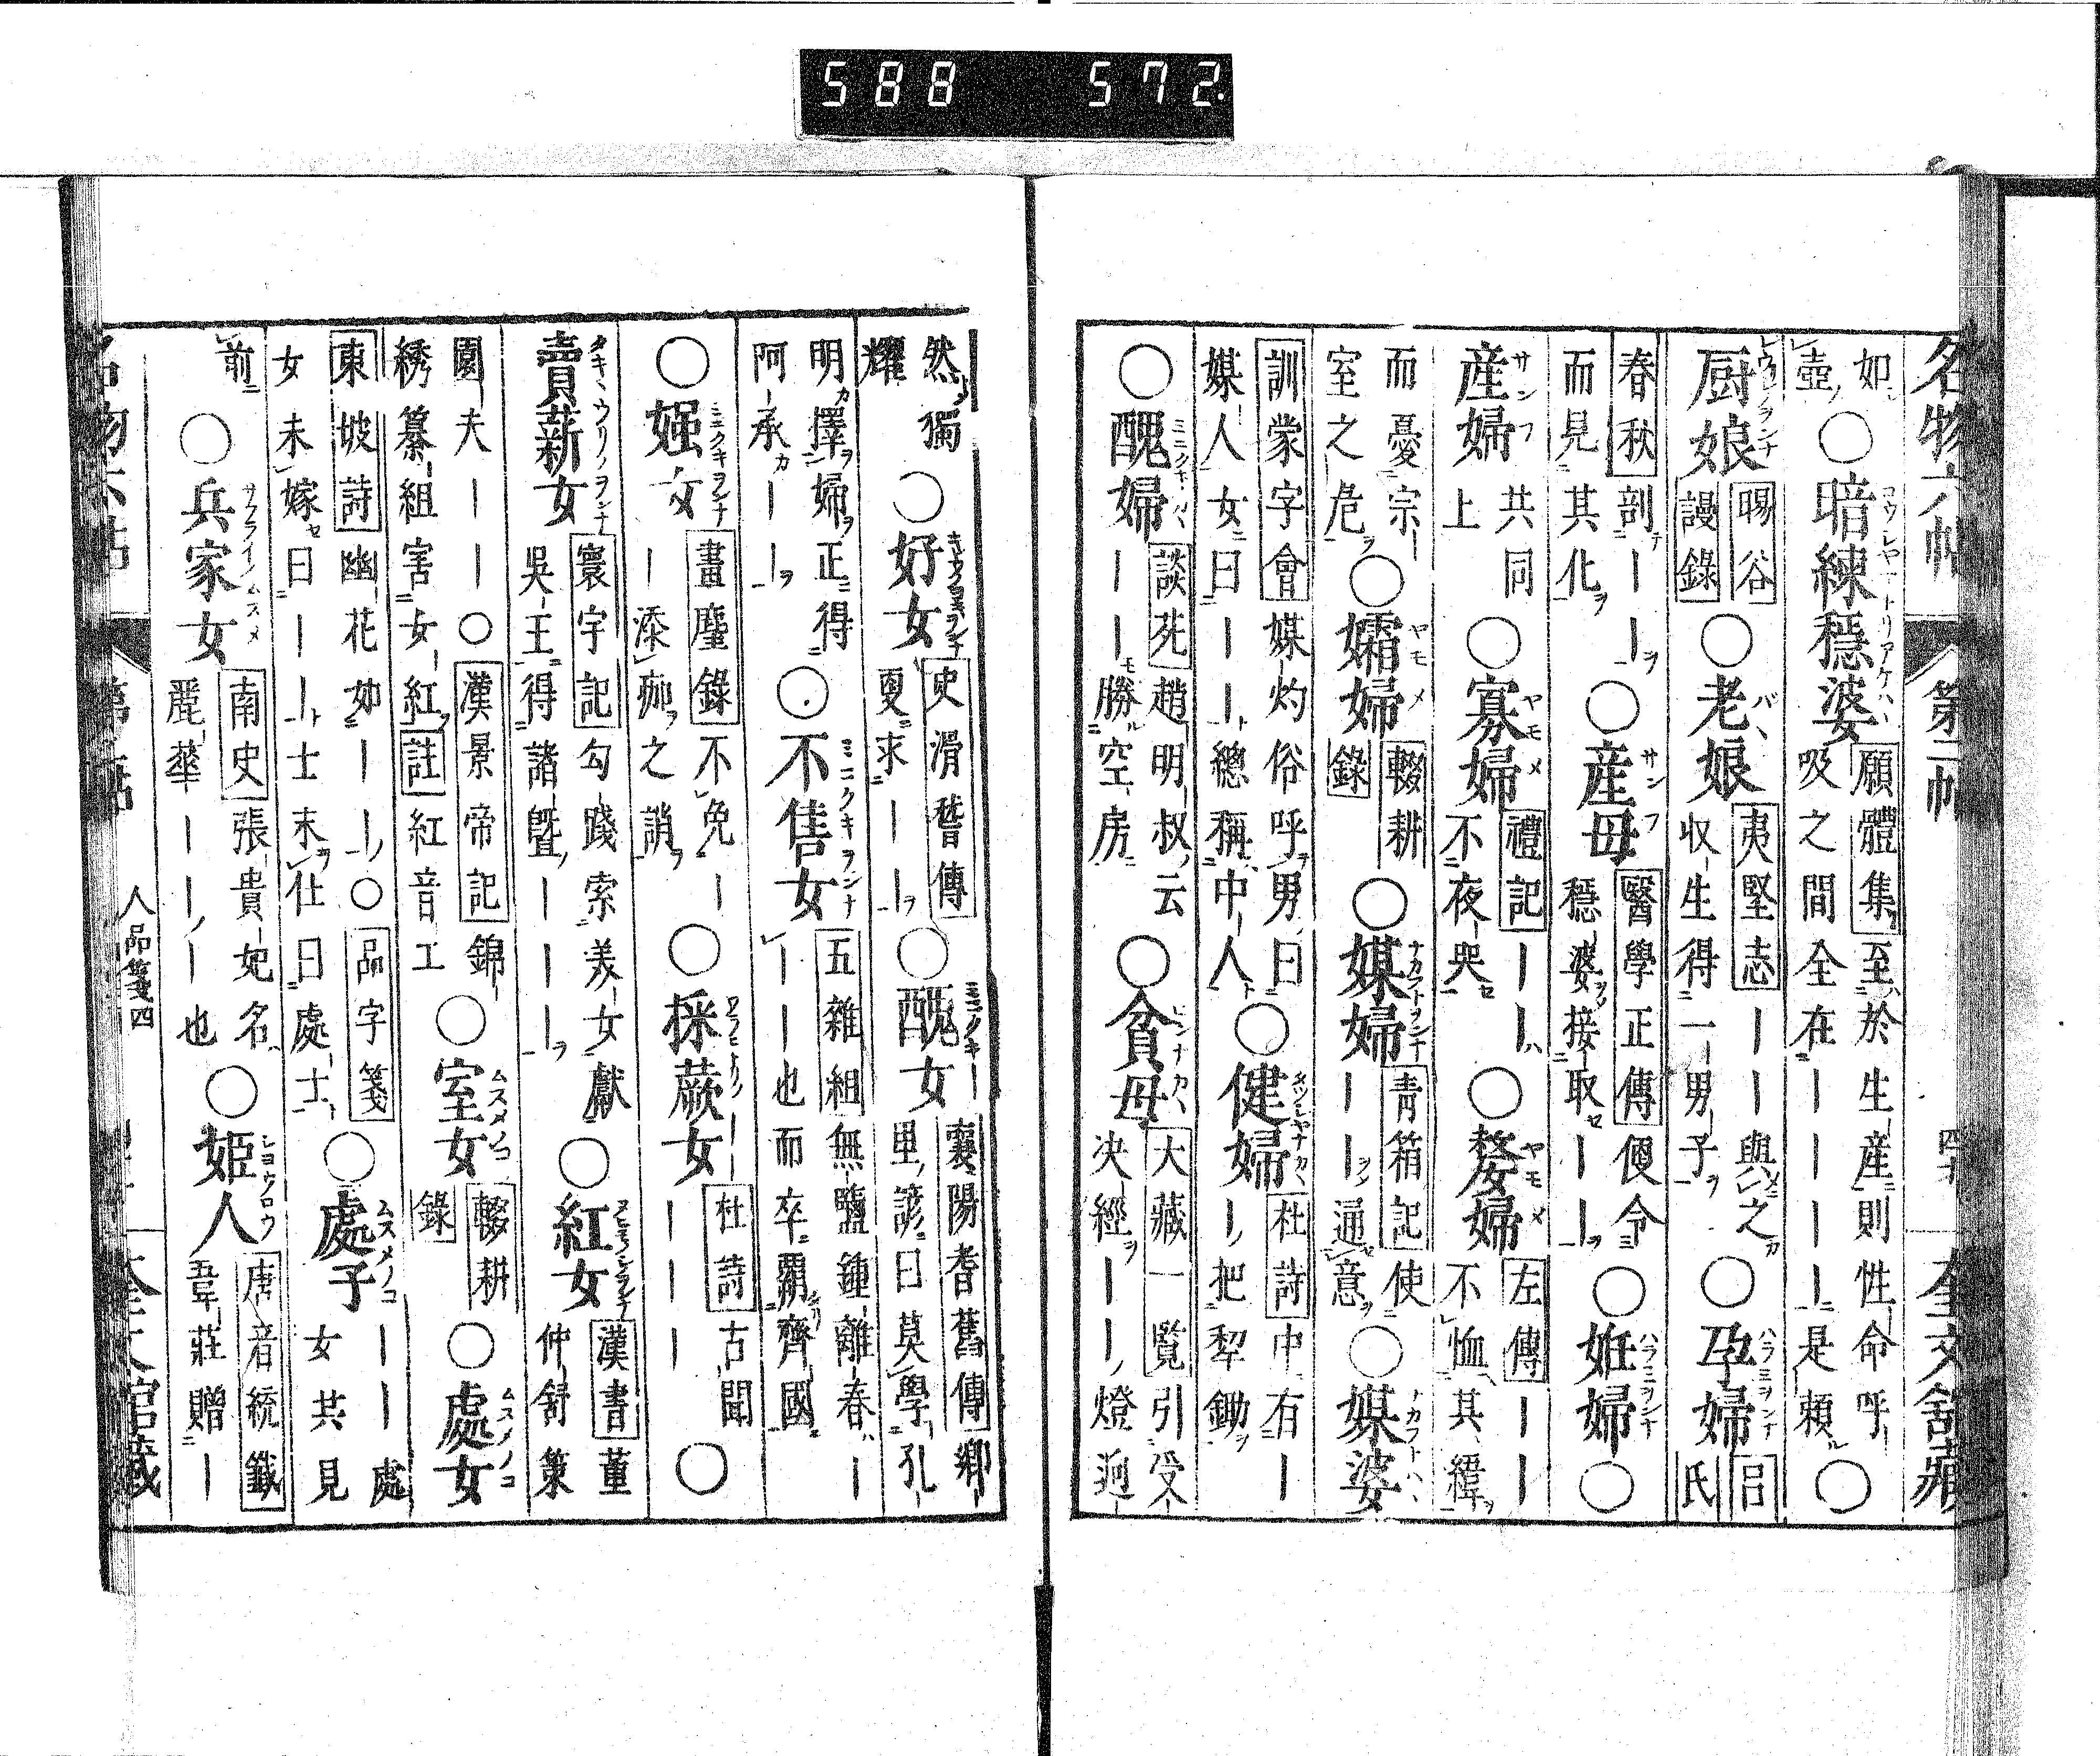 588 572.
名物六帖 第二帖 奎文舘藏
如 壺 ○暗練穩婆 願體集 至於生産則性命呼吸之間全在｜｜｜｜是頼 ○
厨娘 暘谷謾錄 ○老娘 夷堅志 ｜｜與之収生得一男子 ○孕婦 呂氏
春秋 剖｜｜而見其化 ○産母 醫學正傳 偃令穩婆接取｜｜ ○姙婦 ○
産婦 共同上 ○寡婦 禮記 ｜｜不夜哭 ○嫠婦 左傳 ｜｜不恤其緯
而憂宗室之危 ○孀婦 輟耕錄 ○媒婦 青箱記 使｜｜通意 ○媒婆
訓蒙字會 媒灼俗呼男曰媒人女曰｜｜總稱中人 ○健婦 杜詩 中有｜｜把犂鋤
○醜婦 談苑 趙明叔云｜｜勝空房 ○貧母 大藏一覽 引受決經｜｜燈逈
然獨耀 ○好女 史滑稽傳 更求｜｜ ○醜女 襄陽耆舊傳 鄉里諺曰莫學孔
明擇婦正得阿承｜｜ ○不售女 五雜組 無鹽鍾離春｜｜｜也而卒覇齊國
○娙女 畫塵錄 不免｜｜添痂之誚 ○採蕨女 杜詩 古聞｜｜｜ ○
賣薪女 寰宇記 勾踐索美女獻吳王得諸曁｜｜｜ ○紅女 漢書 董仲舒策
園夫｜｜ ○漢景帝記 錦綉纂組害女紅 註 紅音工 ○室女 輟耕錄 ○處女
東坡詩 幽花如｜｜ ○品字箋 女未嫁曰｜｜士未仕曰處士 ○處子 ｜｜處女共見
前 ○兵家女 南史 張貴妃名麗華｜｜｜也 ○姬人 唐音統籤 韋莊贈｜
人品箋四